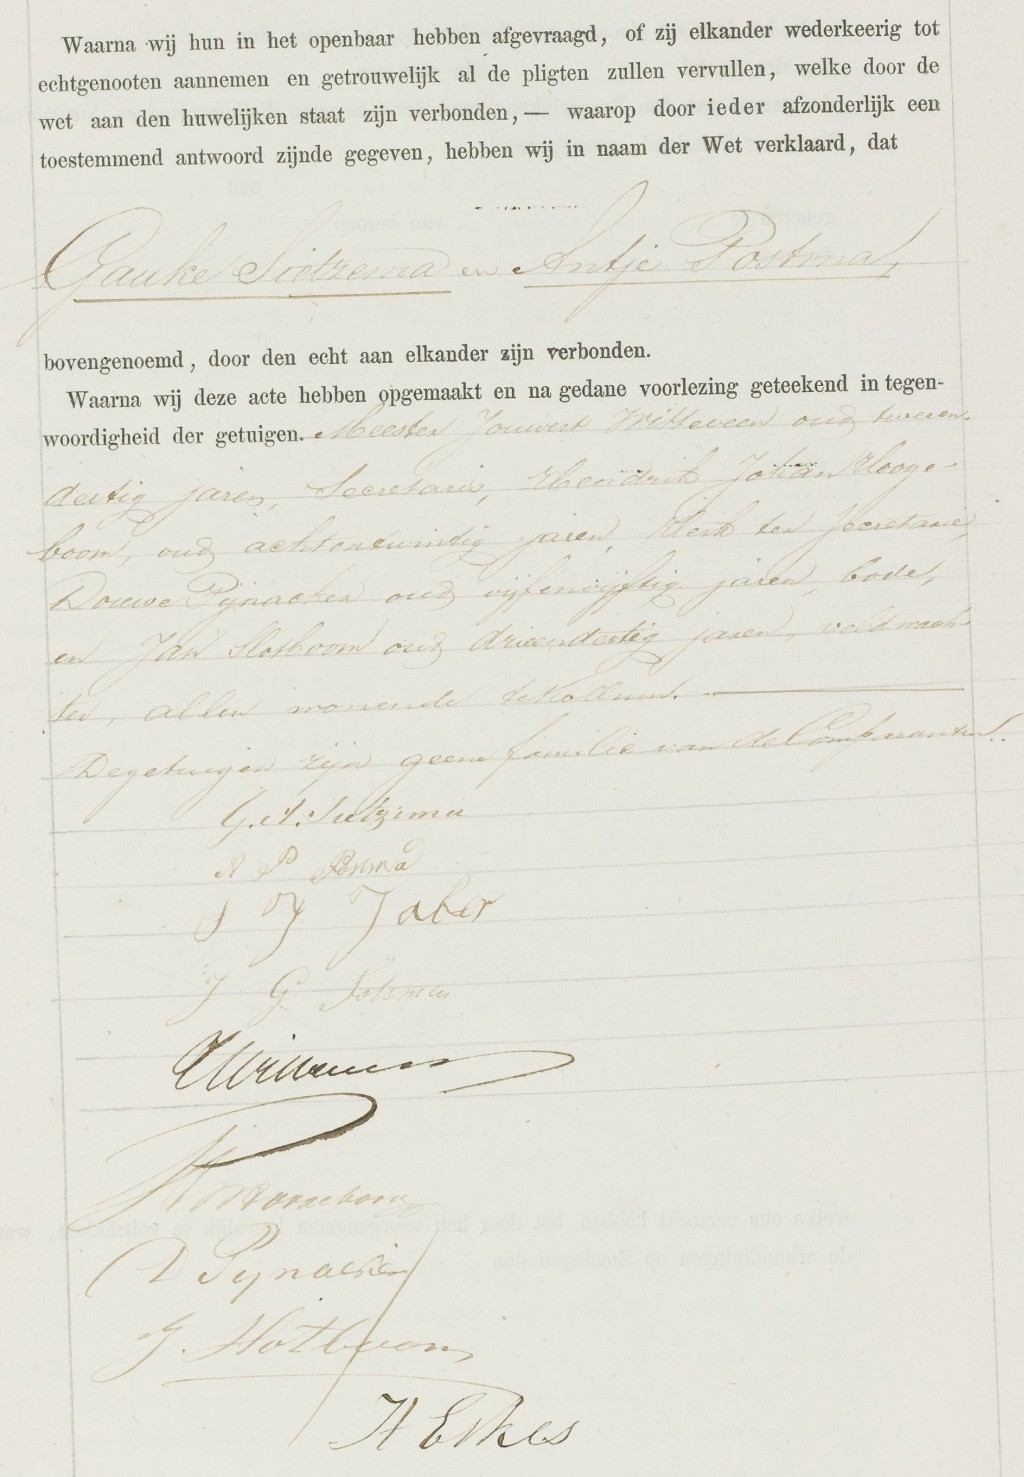 Waarna wij hun in het openbaar hebben afgevraagd, of zij elkander wederkeerig tot
echtgenooten aannemen en getrouwelijk al de pligten zullen vervullen, welke door de
wet aan den huwelijken staat zijn verbonden, — waarop door ieder afzonderlijk een
toestemmend antwoord zijnde gegeven, hebben wij in naam der Wet verklaard, dat
Gauke Sietzema en Antje Postma,
bovengenoemd, door den echt aan elkander zijn verbonden.
Waarna wij deze acte hebben opgemaakt en na gedane voorlezing geteekend in tegen-
woordigheid der getuigen. Meester Jouwert Witteveen oud tweeen
dertig jaren, Secretaris, Hendrik Johan Hooge-
boom, oud achtentwintig jaren, klerk ter Secretarie,
Douwe Pijnacker oud vijfenvijftig jaren, bode,
en Jan Slotboom oud drieendertig jaren, veldwach-
ter, allen wonende te Kollum.
De getuigen zijn geene familie van de Comparanten.
G. A. Sietzema
A P Postma
J Taber
J G
JWitteveen
D Pijnacker
J. Slotboom
H Eskes